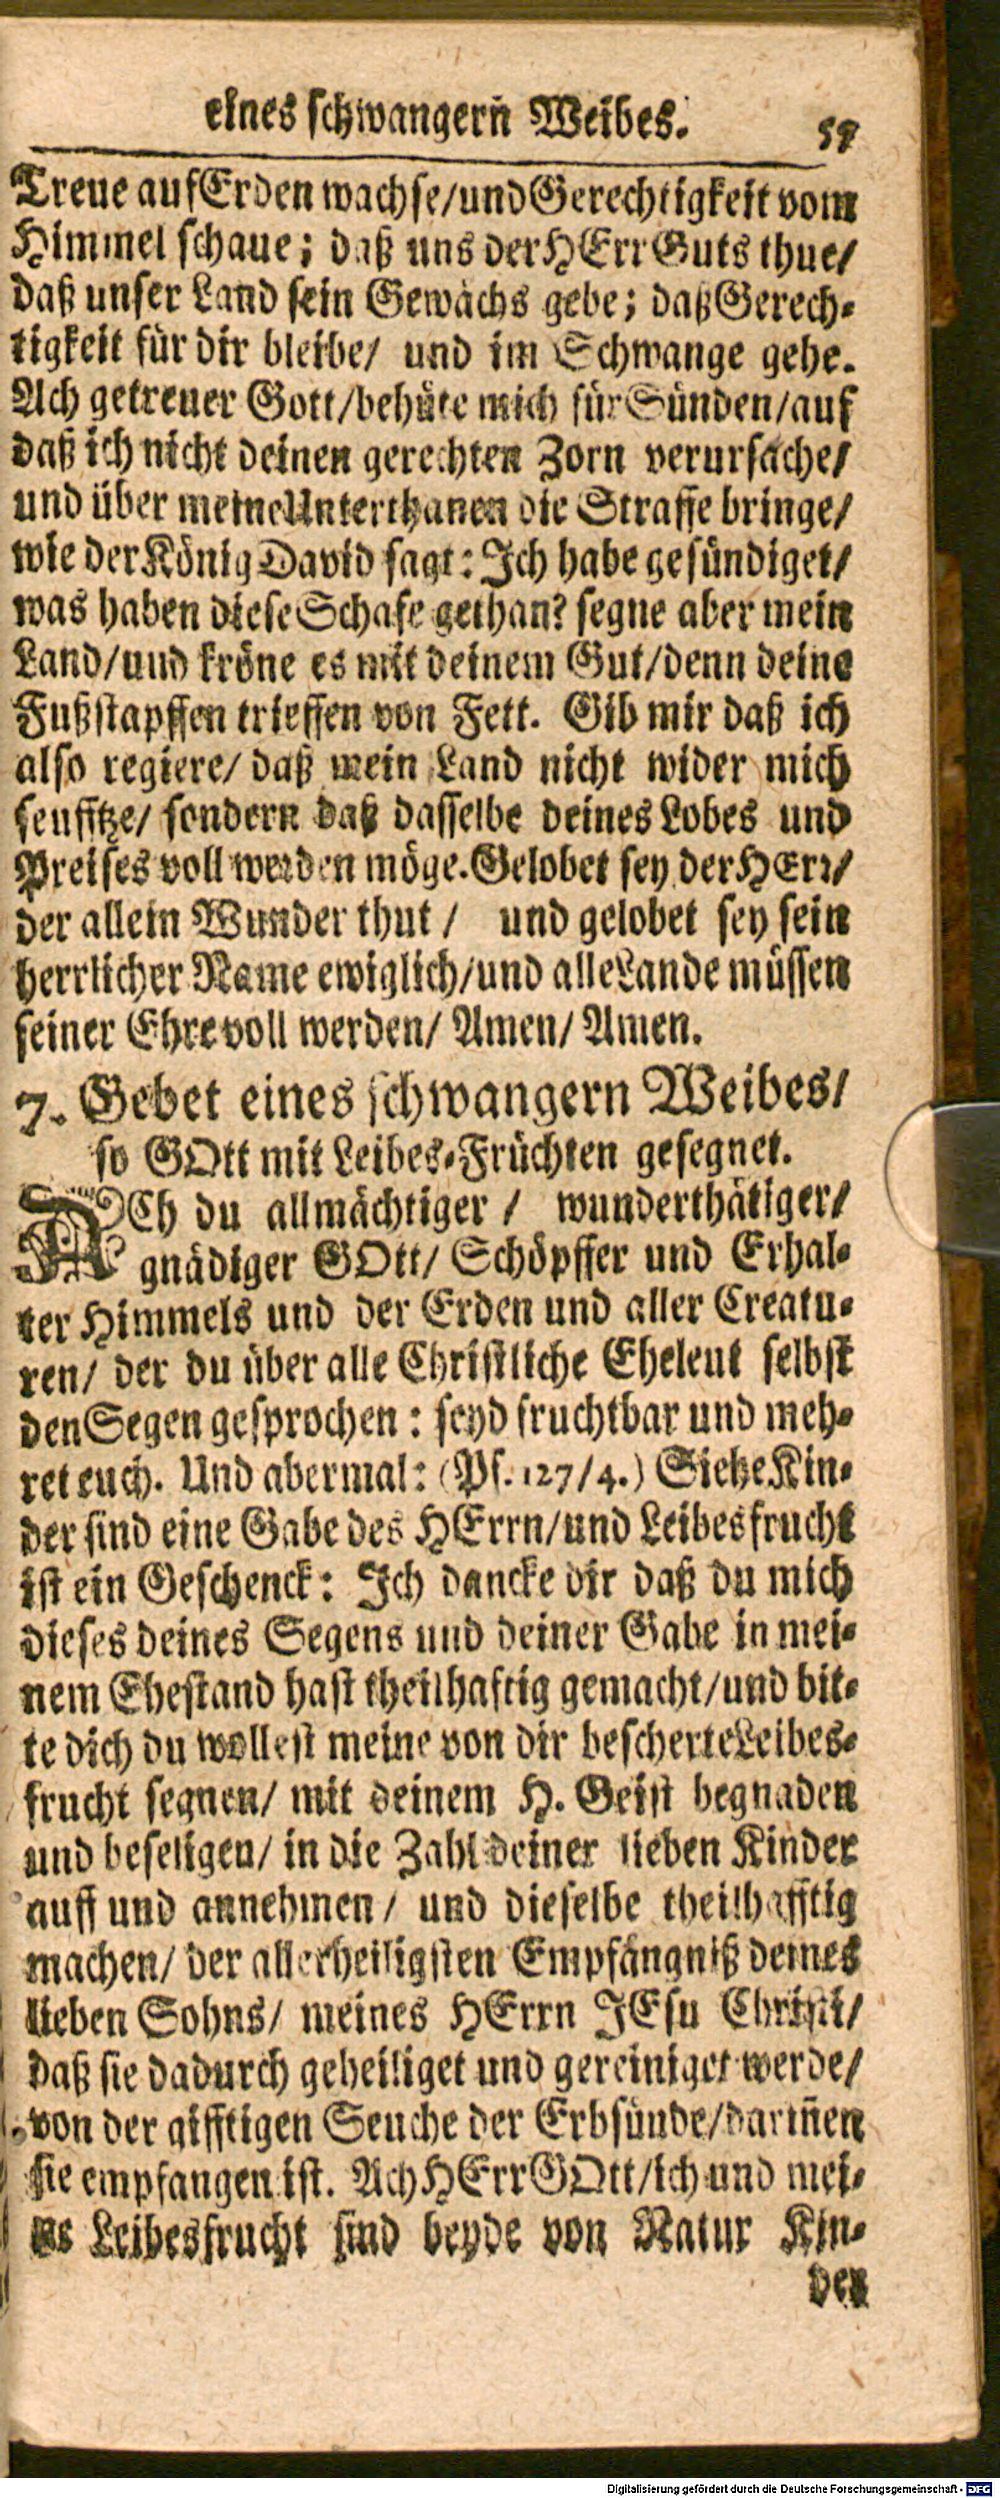 eines schwangern̄ Weibes. 59
Treue auf Erden wachse/und Gerechtigkeit vom
Himmel schaue; daß uns der HErr Guts thue/
daß unser Land sein Gewächs gebe; daß Gerech-
tigkeit für dir bleibe/ und im Schwange gehe.
Ach getreuer Gott/behüte mich für Sünden/auf
daß ich nicht deinen gerechten Zorn verursache/
und über meine Unterthanen die Straffe bringe/
wie der König David sagt: Ich habe gesündiget/
was haben diese Schafe gethan? segne aber mein
Land/und kröne es mit deinem Gut/denn deine
Fußstapffen trieffen von Fett. Gib mir daß ich
also regiere/ daß mein Land nicht wider mich
seufftze/ sondern daß dasselbe deines Lobes und
Preises voll werden möge. Gelobet sey der HErr/
der allein Wunder thut / und gelobet sey sein
herrlicher Name ewiglich/und alle Lande müssen
seiner Ehre voll werden/ Amen/ Amen.
7. Gebet eines schwangern Weibes/
so GOtt mit Leibes-Früchten gesegnet.
ACh du allmächtiger / wunderthätiger/
gnädiger GOtt/ Schöpffer und Erhal-
ter Himmels und der Erden und aller Creatu-
ren/ der du über alle Christliche Eheleut selbst
den Segen gesprochen: seyd fruchtbar und meh-
ret euch. Und abermal: (Ps. 127/4.) Siehe Kin-
der sind eine Gabe des HErrn/und Leibesfrucht
ist ein Geschenck: Ich dancke dir daß du mich
dieses deines Segens und deiner Gabe in mei-
nem Ehestand hast theilhaftig gemacht/und bit-
te dich du wollest meine von dir bescherte Leibes-
frucht segnen/ mit deinem H. Geist begnaden
und beseligen/ in die Zahl deiner lieben Kinder
auff und annehmen/ und dieselbe theilhafftig
machen/ der allerheiligsten Empfängniß deines
lieben Sohns/ meines HErrn JEsu Christi/
daß sie dadurch geheiliget und gereiniget werde/
von der gifftigen Seuche der Erbsünde/dariñen
sie empfangen ist. Ach HErr GOtt/ich und mei-
ne Leibesfrucht sind beyde von Natur Kin-
der
Digitalisierung gefördert durch die Deutsche Forschungsgemeinschaft - DFG